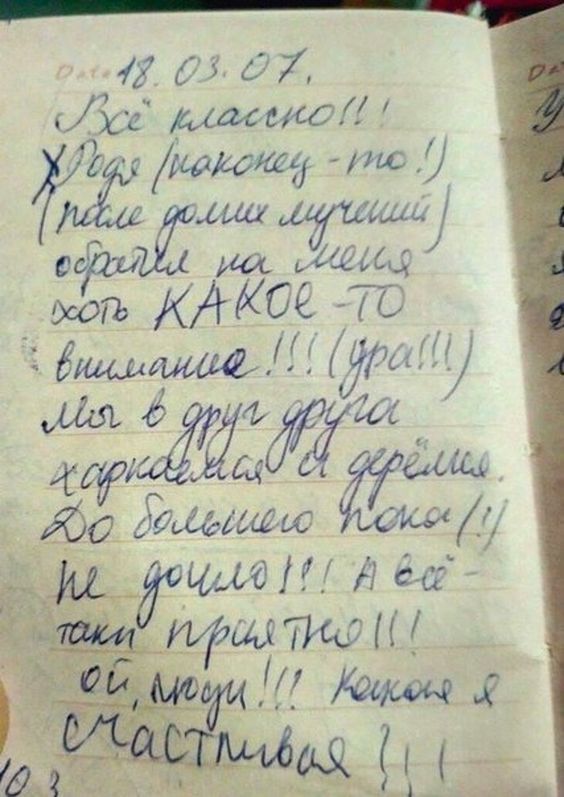 Date 18.03.07.
Всё классно!!!
Родя (наконец-то!)
(после долгих мучений)
обратил на меня
хоть КАКОЕ-ТО
внимание!!! (ура!!!)
Мы в друг друга
харкаемся и дерёмся.
До большего пока(!)
не дошло!!! А всё-
таки приятно!!!
ой, люди!!! Какая я
счастливая!!!